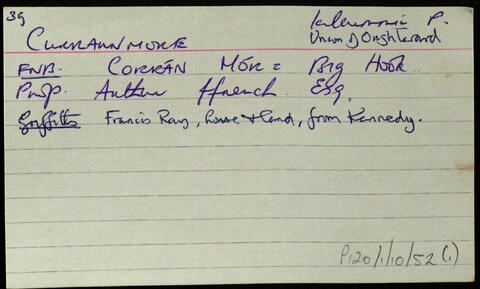 39
Kilcummin P.
CURRAUNMORE
Union of Oughterard
FNB. CORRÁN MÓR = Big Hook.
Prop. Arthur Ffrench Esq.
Griffiths Francis Ray, house & land, from Kennedy.
P120/1/10/52 (1)